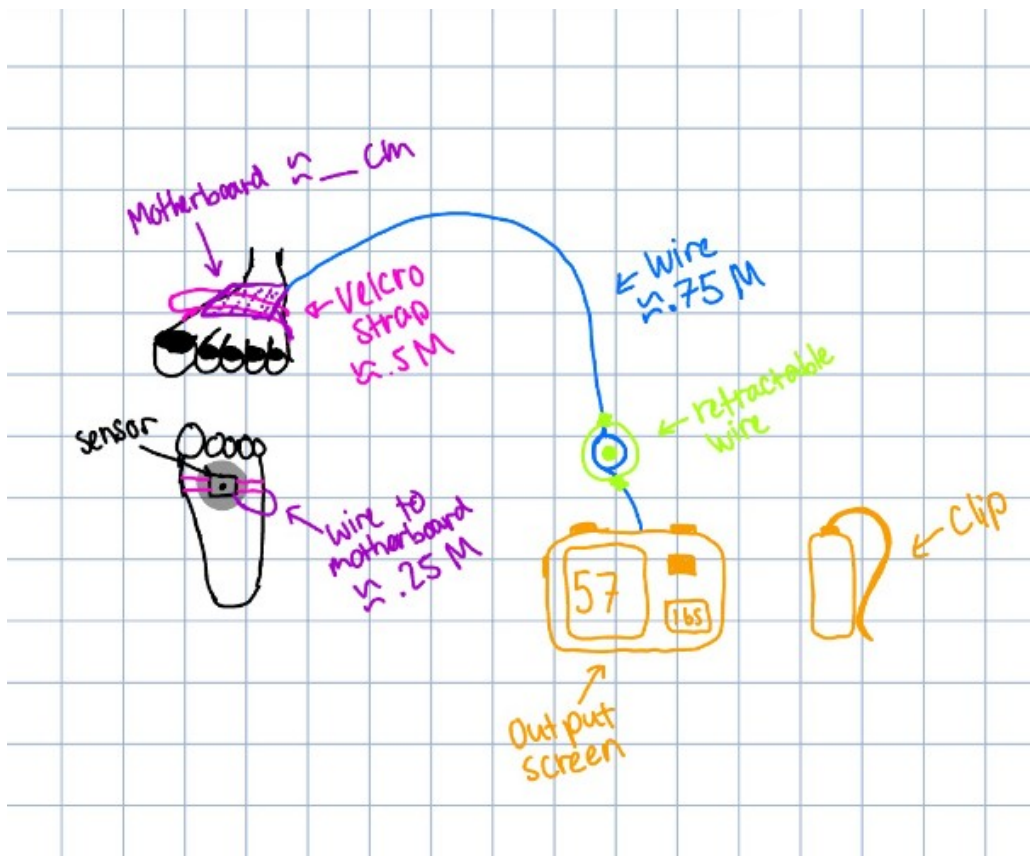 Motherboard ≈ __ cm
← Velcro
strap
≈ .5 M
← wire
≈ .75 M
← retractable
wire
sensor
wire to
motherboard
≈ .25 M
57
lbs
← Clip
Output
screen